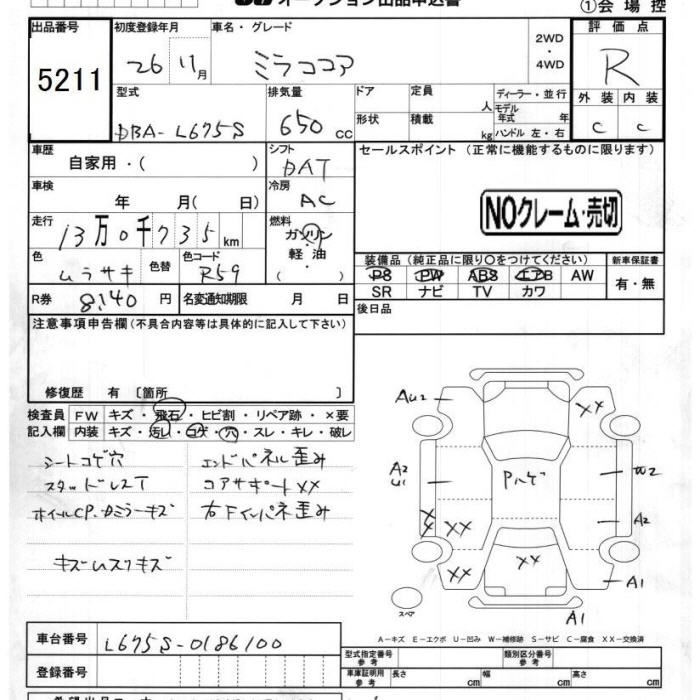 オークション出品申込書
①会場控
出品番号 5211
初度登録年月 26 11月
車名・グレード ミラココア
2WD ・ 4WD
評価点 R
外装 C 内装 C
型式 DBA-L675S
排気量 650 cc
ドア 形状
定員 人
積載 kg
ディーラー・並行
モデル年式 年
ハンドル 左・右
車歴 自家用・( )
シフト DAT
セールスポイント (正常に機能するものに限ります)
車検 年 月( 日)
冷房 AC
NOクレーム・売切
走行 13万0千735km
燃料 ガソリン ・ 軽油 ・ ( )
色 ムラサキ 色替 色コード R59
装備品 (純正品に限り○をつけてください) 新車保証書
PS PW ABS エアB AW 有・無
SR ナビ TV カワ
R券 8,140 円 名変通知期限 月 日
後日品
注意事項申告欄 (不具合内容等は具体的に記入して下さい)
修復歴 有 [箇所 ]
検査員 FW キズ・飛石・ヒビ割・リペア跡・×要
記入欄 内装 キズ・汚レ・コゲ・穴・スレ・キレ・破レ
シートコゲ穴 エンドパネル歪み
スタッドレスT コアサポートXX
ホイルCP.ドミラーキズ 右下インパネ歪み
キズムスリキズ
AU2 XX
A2 U1 Pハゲ W2
XX XX A2
XX XX A1
スペア A1
A-キズ E-エクボ U-凹み W-補修跡 S-サビ C-腐食 XX-交換済
車台番号 L675S-0186100
型式指定番号 参考 類別区分番号 参考
登録番号
車庫証明用 参考 長さ cm 幅 cm 高さ cm